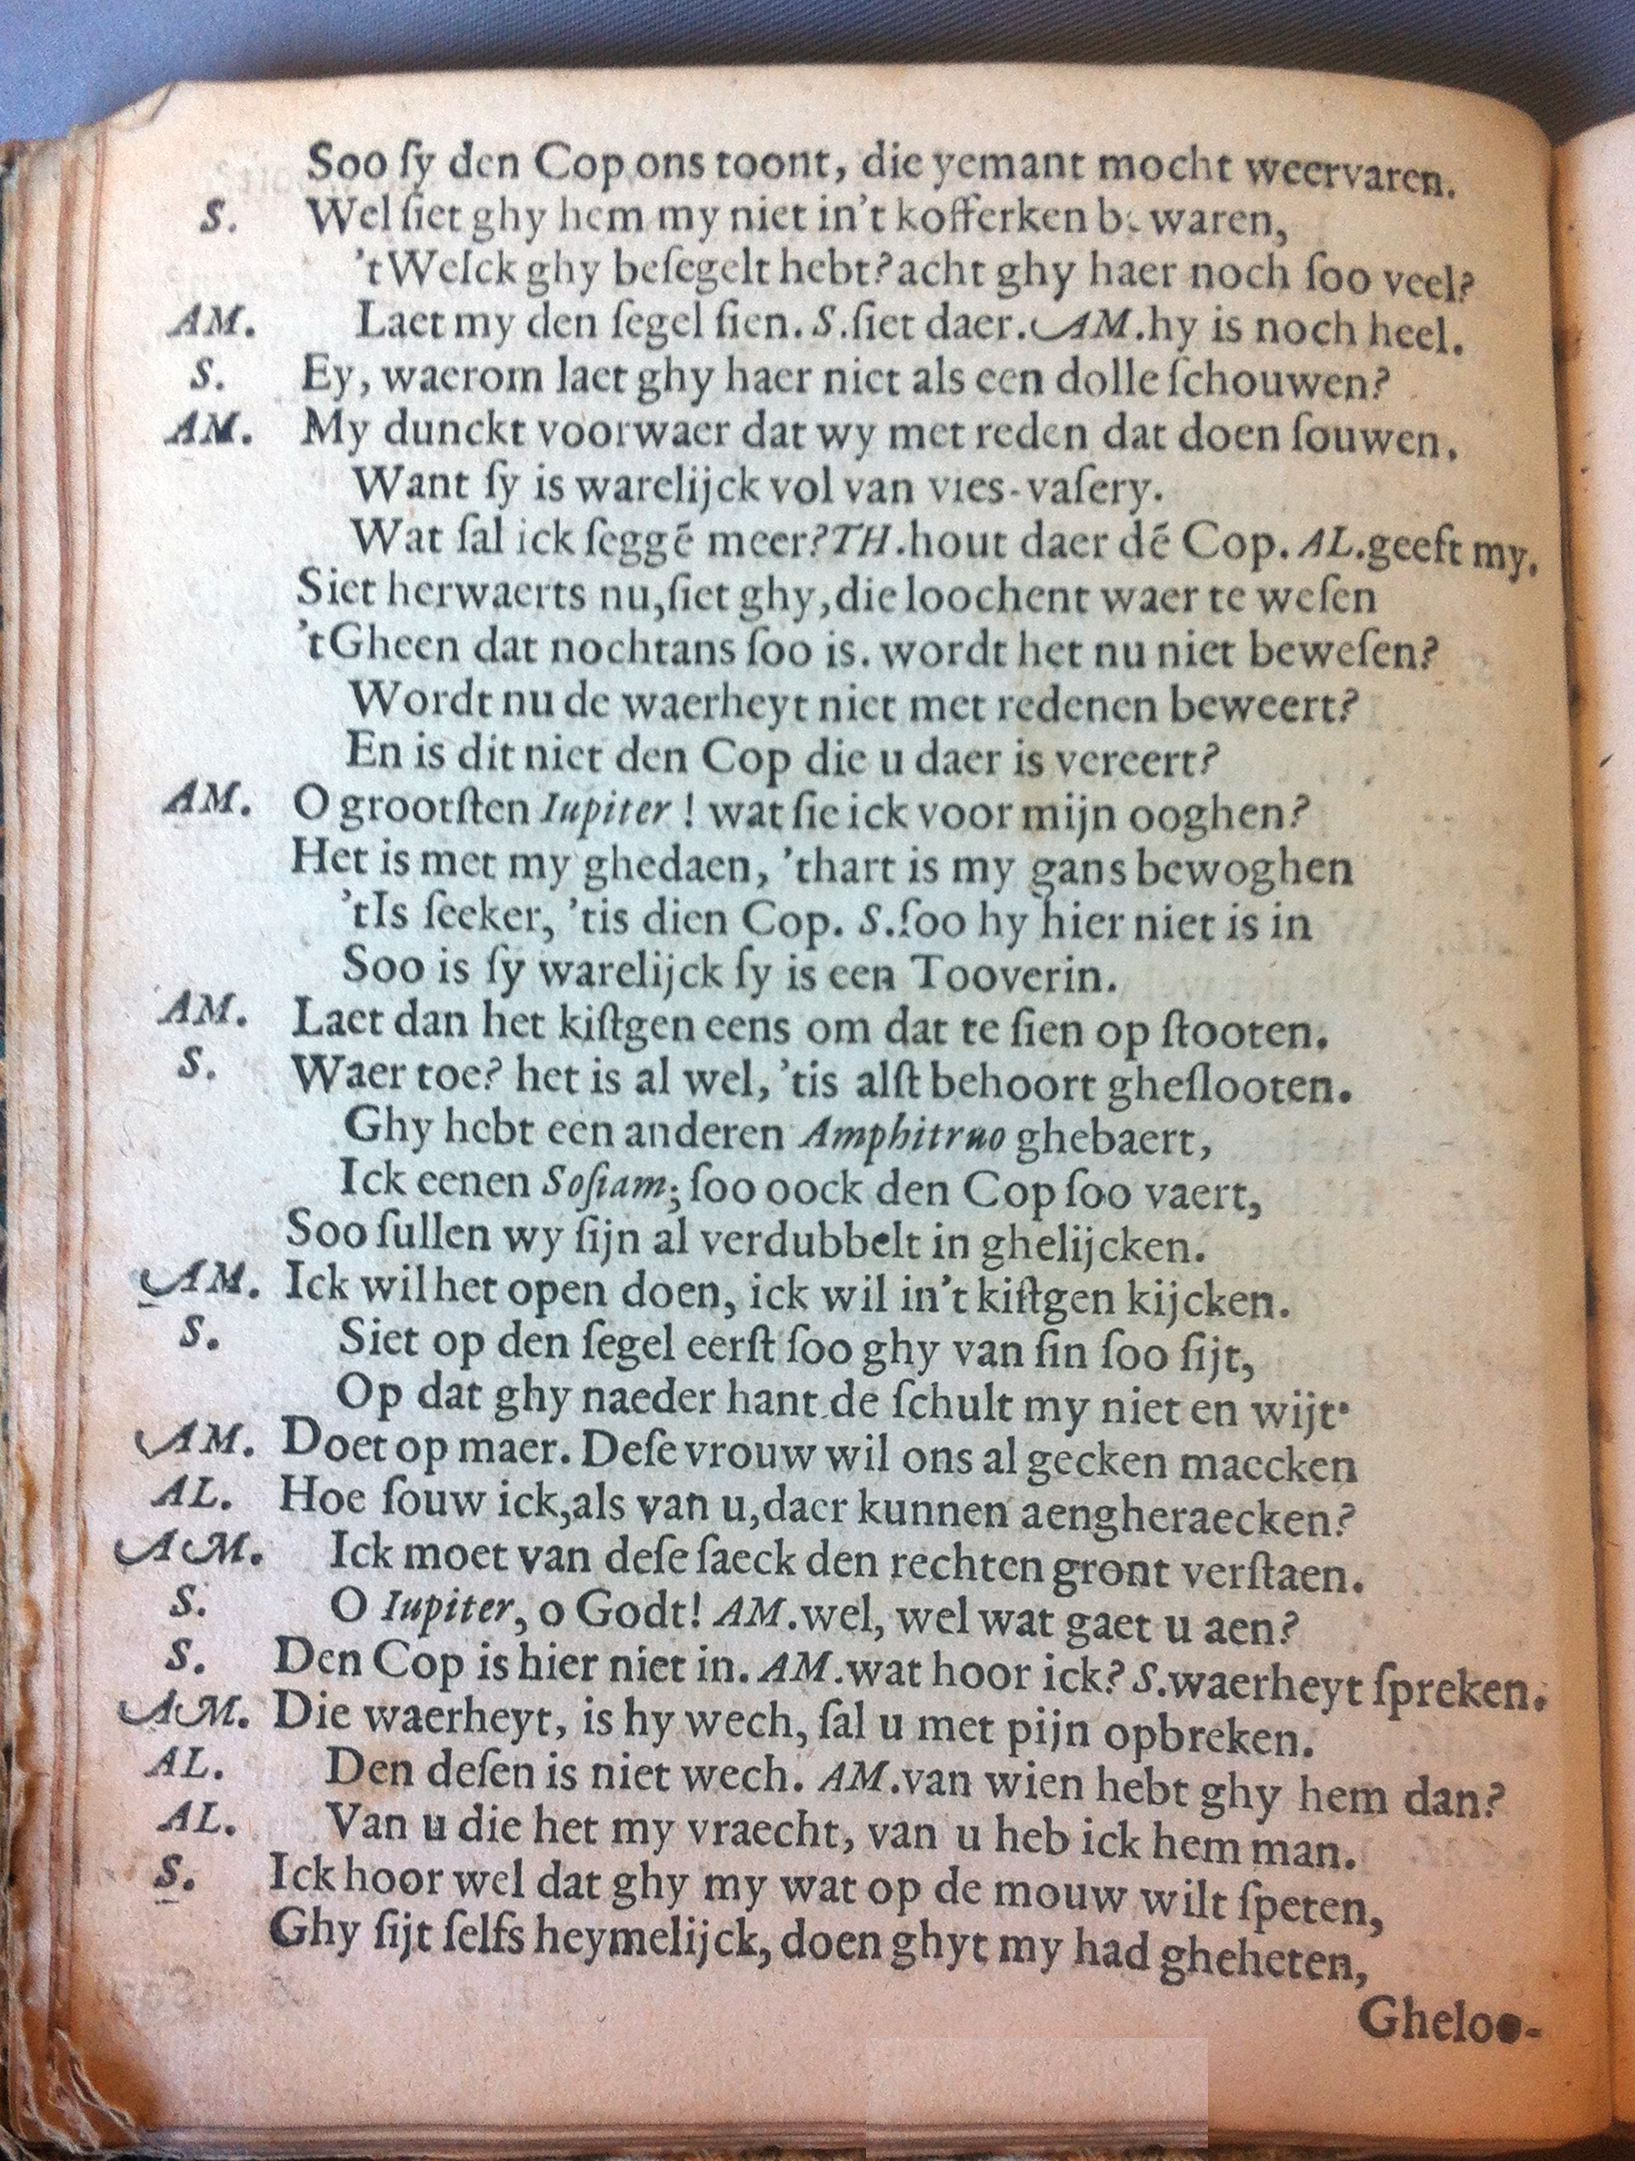 Soo ſy den Cop ons toont, die yemant mocht weervaren.
S. Wel ſiet ghy hem my niet in't kofferken b. waren,
'tWelck ghy beſegelt hebt? acht ghy haer noch ſoo veel?
AM. Laet my den ſegel ſien. S.ſiet daer. AM.hy is noch heel.
S. Ey, waerom laet ghy haer niet als een dolle ſchouwen?
AM. My dunckt voorwaer dat wy met reden dat doen ſouwen.
Want ſy is warelijck vol van vies-vaſery.
Wat ſal ick ſeggē meer? TH.hout daer dē Cop. AL.geeft my.
Siet herwaerts nu, ſiet ghy, die loochent waer te weſen
'tGheen dat nochtans ſoo is. wordt het nu niet beweſen?
Wordt nu de waerheyt niet met redenen beweert?
En is dit niet den Cop die u daer is vereert?
AM. O grootſten Iupiter! wat ſie ick voor mijn ooghen?
Het is met my ghedaen, 'thart is my gans bewoghen
'tIs ſeeker, 'tis dien Cop. S.ſoo hy hier niet is in
Soo is ſy warelijck ſy is een Tooverin.
AM. Laet dan het kiſtgen eens om dat te ſien op ſtooten.
S. Waer toe? het is al wel, 'tis alſt behoort gheſlooten.
Ghy hebt een anderen Amphitruo ghebaert,
Ick eenen Soſiam; ſoo oock den Cop ſoo vaert,
Soo ſullen wy ſijn al verdubbelt in ghelijcken.
AM. Ick wil het open doen, ick wil in't kiſtgen kijcken.
S. Siet op den ſegel eerſt ſoo ghy van ſin ſoo ſijt,
Op dat ghy naeder hant de ſchult my niet en wijt.
AM. Doet op maer. Deſe vrouw wil ons al gecken maecken
AL. Hoe ſouw ick, als van u, daer kunnen aengheraecken?
AM. Ick moet van deſe ſaeck den rechten gront verſtaen.
S. O Iupiter, o Godt! AM.wel, wel wat gaet u aen?
S. Den Cop is hier niet in. AM.wat hoor ick? S.waerheyt ſpreken.
AM. Die waerheyt, is hy wech, ſal u met pijn opbreken.
AL. Den deſen is niet wech. AM.van wien hebt ghy hem dan?
AL. Van u die het my vraecht, van u heb ick hem man.
S. Ick hoor wel dat ghy my wat op de mouw wilt ſpeten,
Ghy ſijt ſelfs heymelijck, doen ghyt my had gheheten,
Gheloo-